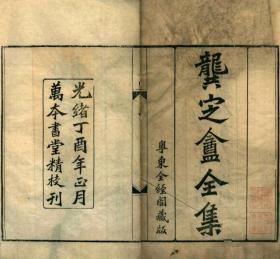 龔定盦全集
粵東全經閣藏版
光緒丁酉年正月
萬本書堂精校刊